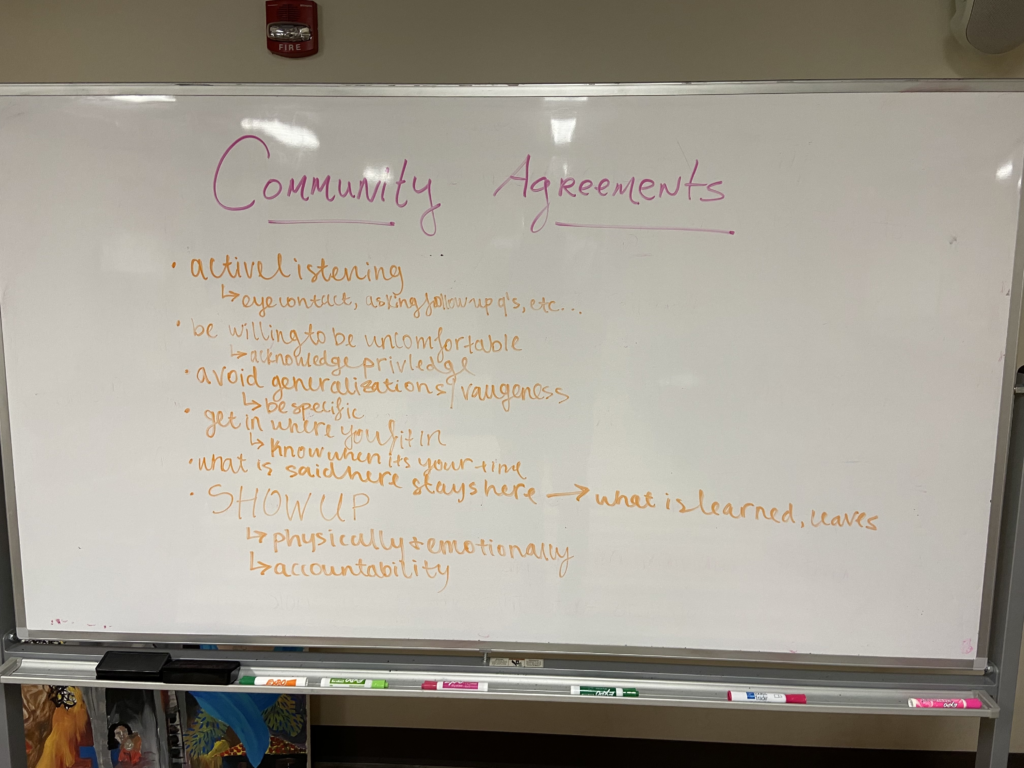 FIRE
Community Agreements
• active listening
↳ eye contact, asking follow up q's, etc...
• be willing to be uncomfortable
↳ acknowledge priviledge
• avoid generalizations/vaugeness
↳ be specific
• get in where you fit in
↳ know when its your time
• what is said here stays here → what is learned, leaves
• SHOW UP
↳ physically + emotionally
↳ accountability
expo